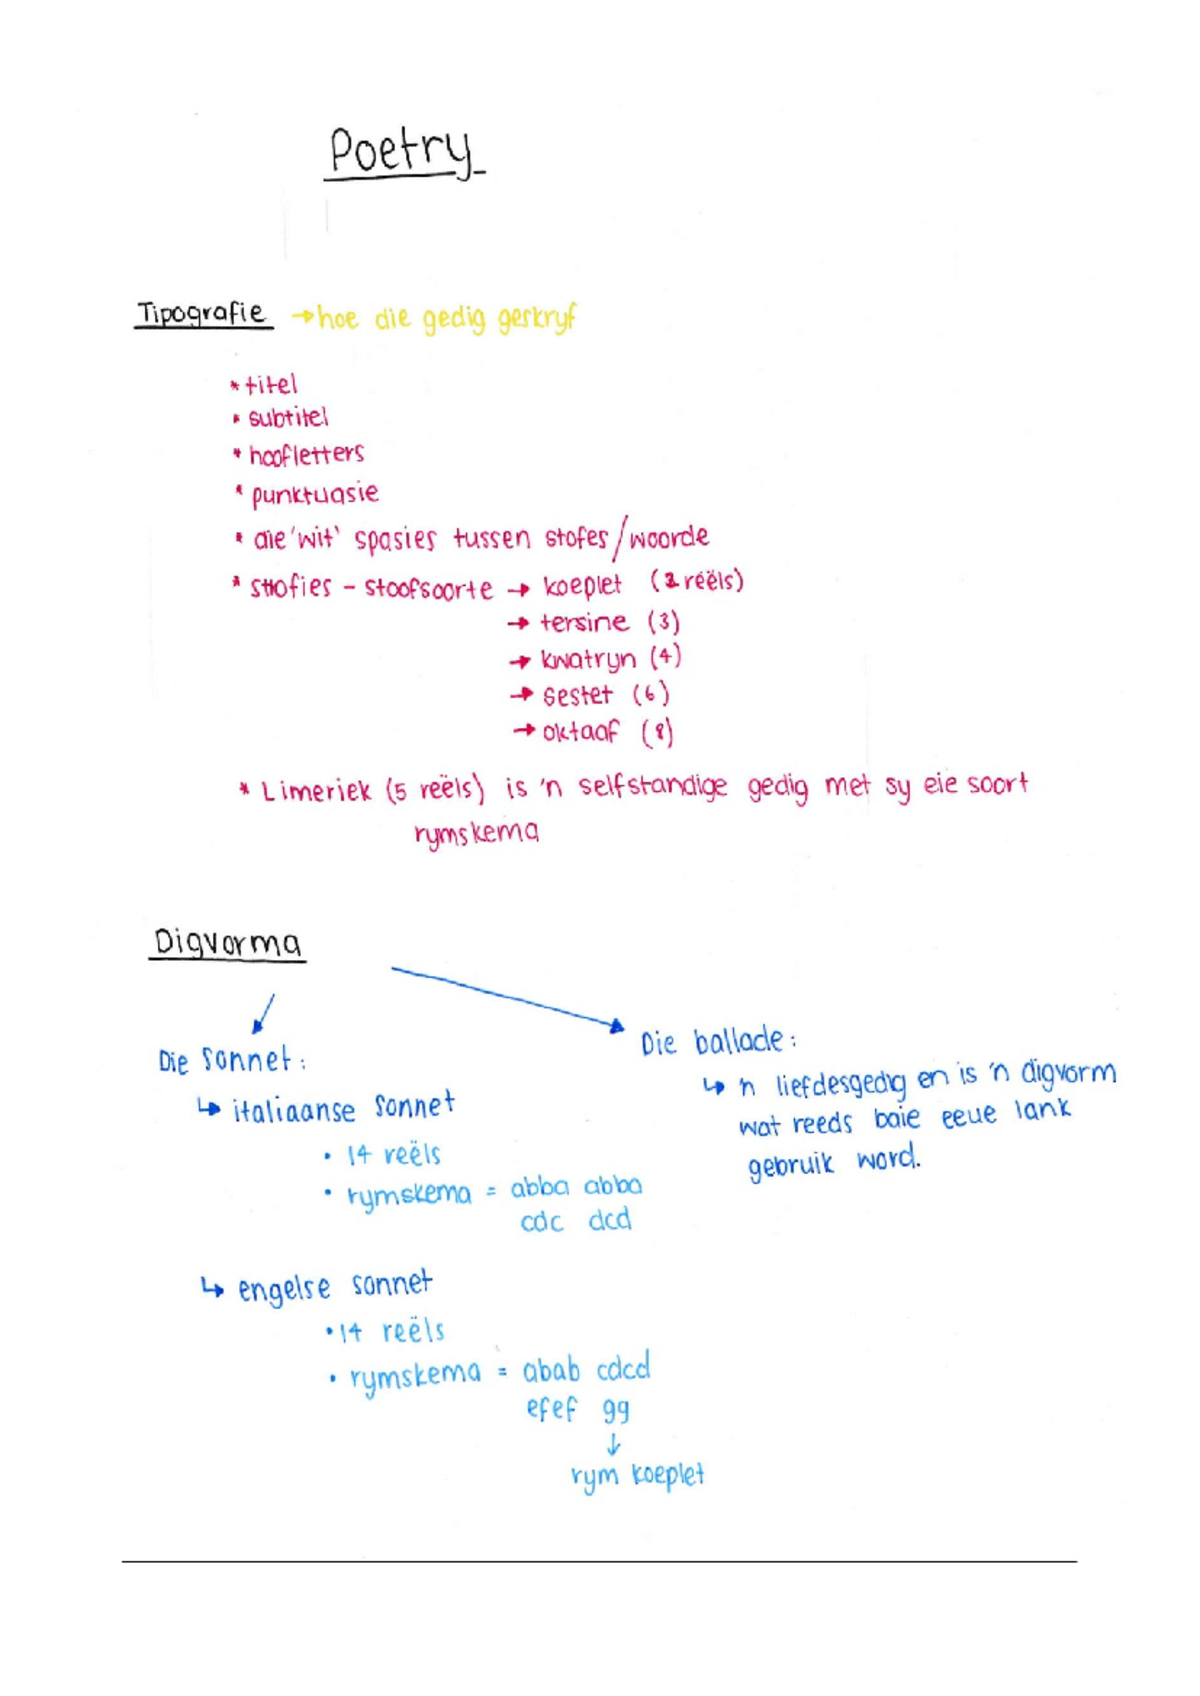 Poetry
Tipografie → hoe die gedig geskryf
* titel
* subtitel
* hoofletters
* punktuasie
* die 'wit' spasies tussen stofes/woorde
* strofies - stoofsoorte → koeplet (2 reëls)
→ tersine (3)
→ kwatryn (4)
→ sestet (6)
→ oktaaf (8)
* Limeriek (5 reëls) is 'n selfstandige gedig met sy eie soort
rymskema
Digvorma
Die sonnet:
↳ italiaanse sonnet
• 14 reëls
• rymskema = abba abba
cdc dcd
↳ engelse sonnet
• 14 reëls
• rymskema = abab cdcd
efef gg
↓
rym koeplet
Die ballade:
↳ 'n liefdesgedig en is 'n digvorm
wat reeds baie eeue lank
gebruik word.